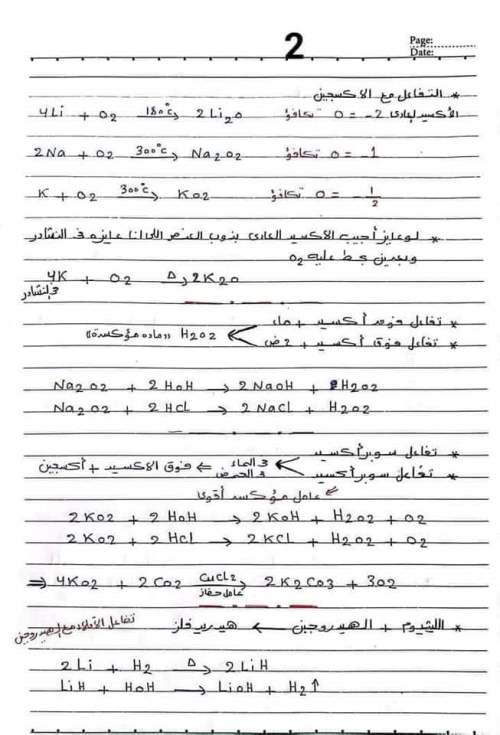 2
Page:
Date:
* التفاعل مع الاكسجين
4Li + O2 180°c→ 2Li2O تكافؤ O = -2 الأكسيد العادى
2Na + O2 300°c→ Na2O2 تكافؤ O = -1
K + O2 300°c→ KO2 تكافؤ O = -1/2
* لو عايز أجيب الاكسيد العادى بذوب العنصر اللى انا عايزه فى النشادر
وبعدين بحط عليه O2
4K + O2 Δ→ 2K2O
فى النشادر
* تفاعل فوق أكسيد + ماء
* تفاعل فوق أكسيد + حمض
H2O2 «ماده مؤكسدة»
Na2O2 + 2HOH → 2NaOH + H2O2
Na2O2 + 2HCl → 2NaCl + H2O2
* تفاعل سوبر أكسيد مع الماء
* تفاعل سوبر أكسيد مع الحمض
⇐ فوق الاكسيد + أكسجين
عامل مؤكسد أقوى
2KO2 + 2HOH → 2KOH + H2O2 + O2
2KO2 + 2HCl → 2KCl + H2O2 + O2
⇒ 4KO2 + 2CO2 CuCl2→ 2K2CO3 + 3O2
عامل حفاز
تفاعل الأقلاء مع الهيدروجين
* الليثيوم + الهيدروجين ← هيدريد فلز
2Li + H2 Δ→ 2LiH
LiH + HOH → LiOH + H2↑